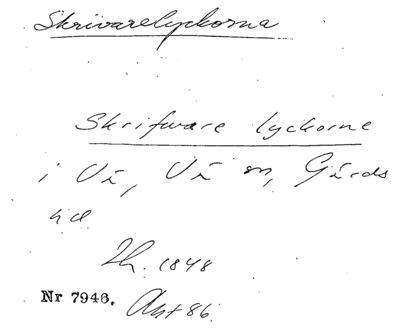 Skrivarelyckorna
Skrifware lyckorne
i Vi, Vi sn, Gärds
hd
Lh. 1848
Nr 7946. Akt 86.